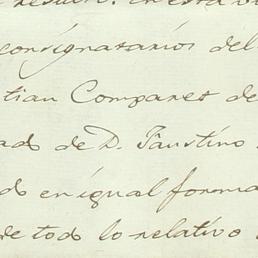 en esta
consignatarios del
tian Companet de
ado de D. Faustino
do en igual forma
de todo lo relativo